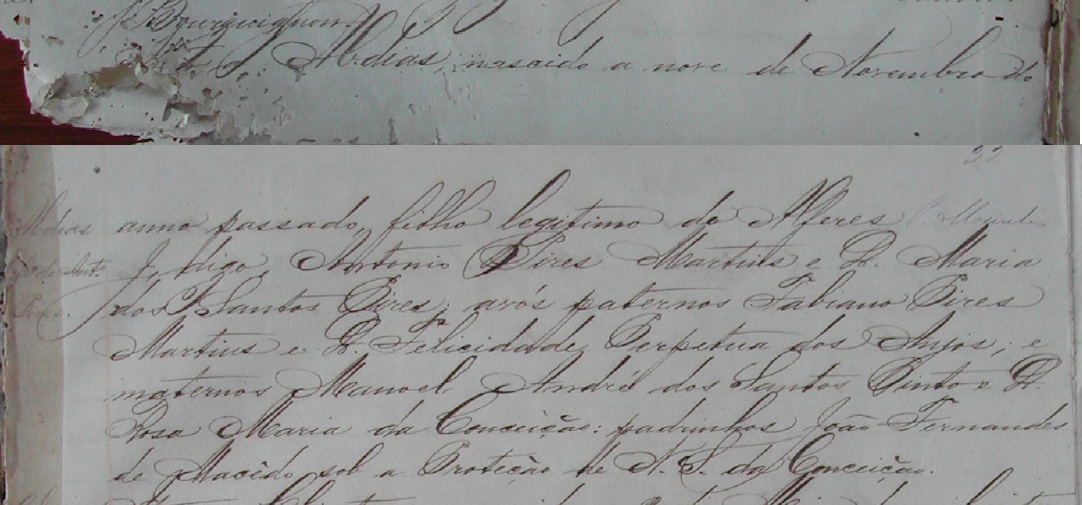 J. Bourguignon.
Abdias, nascido a nove de Novembro do
33
Abdias anno passado, filho legitimo do Alferes
J, digo, Antonio Pires Martins e D. Maria
dos Santos Pires; avós paternos Fabiano Pires
Martins e D. Felicidade Perpetua dos Anjos; e
maternos Manoel André dos Santos Pinto e D.
Rosa Maria da Conceição: padrinhos João Fernandes
de Macêdo sob a Proteção de N. S. da Conceição.